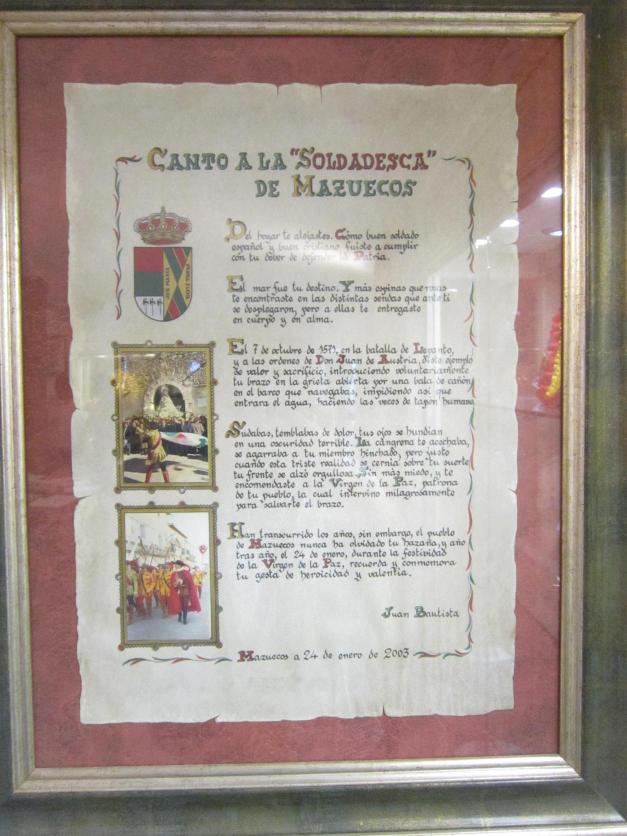 CANTO A LA "SOLDADESCA"
DE MAZUECOS
Del hogar te alejastes. Cómo buen soldado
español y buen cristiano fuiste a cumplir
con tu deber de defender la Patria.
El mar fue tu destino. Y más espinas que rosas
te encontraste en las distintas sendas que ante ti
se desplegaron, pero a ellas te entregaste
en cuerpo y en alma.
El 7 de octubre de 1571, en la batalla de Lepanto,
y a las ordenes de Don Juan de Austria, diste ejemplo
de valor y sacrificio, introduciendo voluntariamente
tu brazo en la grieta abierta por una bala de cañón
en el barco que navegabas, impidiendo así que
entrara el agua, haciendo las veces de tapón humano.
Sudabas, temblabas de dolor, tus ojos se hundían
en una oscuridad terrible. La cangrena te acechaba,
se agarraba a tu miembro hinchado, pero justo
cuando esta triste realidad se cernía sobre tu suerte
tu frente se alzó orgullosa. Sin más miedo, y te
encomendaste a la Virgen de la Paz, patrona
de tu pueblo, la cual intervino milagrosamente
para salvarte el brazo.
Han transcurrido los años, sin embargo, el pueblo
de Mazuecos nunca ha olvidado tu hazaña, y año
tras año, el 24 de enero, durante la festividad
de la Virgen de la Paz, recuerda y conmemora
tu gesta de heroicidad y valentía.
Juan Bautista
Mazuecos a 24 de enero de 2003